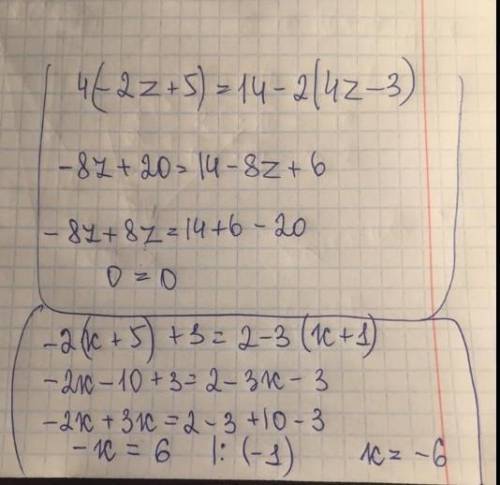 4(-2z+5)=14-2(4z-3)
-8z+20=14-8z+6
-8z+8z=14+6-20
0=0
-2(x+5)+3=2-3(x+1)
-2x-10+3=2-3x-3
-2x+3x=2-3+10-3
-x=6 |:(-1) x=-6